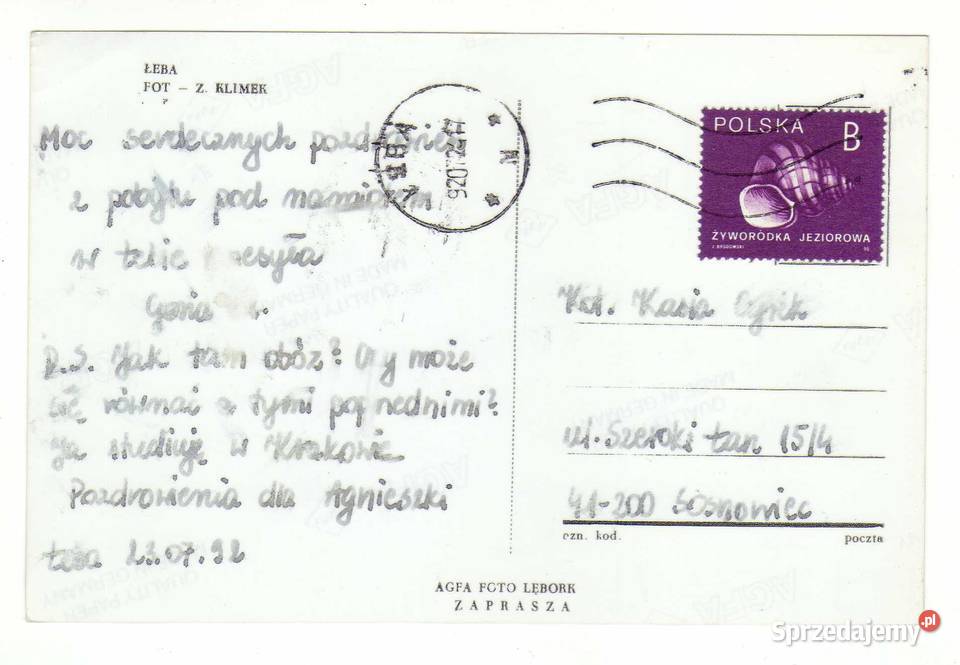 ŁEBA
FOT – Z. KLIMEK
Moc serdecznych
z pobytu pod
w Łebie
Gosia
P.S. Jak tam obóz? Czy może
się równać z tymi poprzednimi?
Ja studiuję w Krakowie
Pozdrowienia dla Agnieszki
Łeba 23.07.92
ŁEBA
POLSKA B
ŻYWORÓDKA JEZIOROWA
Kol. Kasia
ul. Szeroki 15/4
41-200 Sosnowiec
ozn. kod. poczta
AGFA FOTO LĘBORK
ZAPRASZA
MADE IN GERMANY
QUALITY PAPER
AGFA
Sprzedajemy.pl